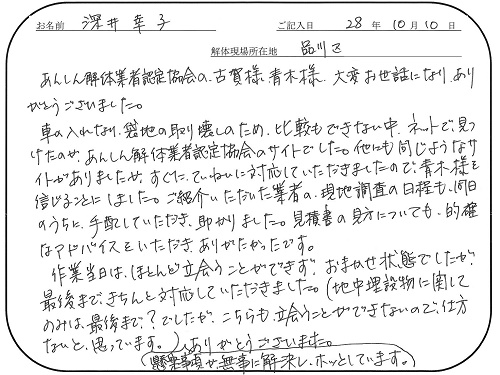 お名前 深井 幸子 ご記入日 28 年 10 月 10 日
解体現場所在地 品川区
あんしん解体業者認定協会の、古賀様、青木様、大変お世話になり、あり
がとうございました。
車の入れない、袋地の取り壊しのため、比較もできない中、ネットで見つ
けたのが、あんしん解体業者認定協会のサイトでした。他にも同じようなサ
イトがありましたが、すぐに、ていねいに対応していただきましたので、青木様を
信じることにしました。ご紹介いただいた業者の、現地調査の日程も、何日
のうちに、手配していただき、助かりました。見積書の見方についても、的確
なアドバイスをいただき、ありがたかったです。
作業当日は、ほとんど立会うことができず、おまかせ状態でしたが、
最後まで、きちんと対応していただきました。(地中埋設物に関して
のみは、最後まで、?でしたが、こちらも、立会うことができないので、仕方
ないと、思っています。) ありがとうございます。
懸案事項が、無事に解決し、ホッとしています。